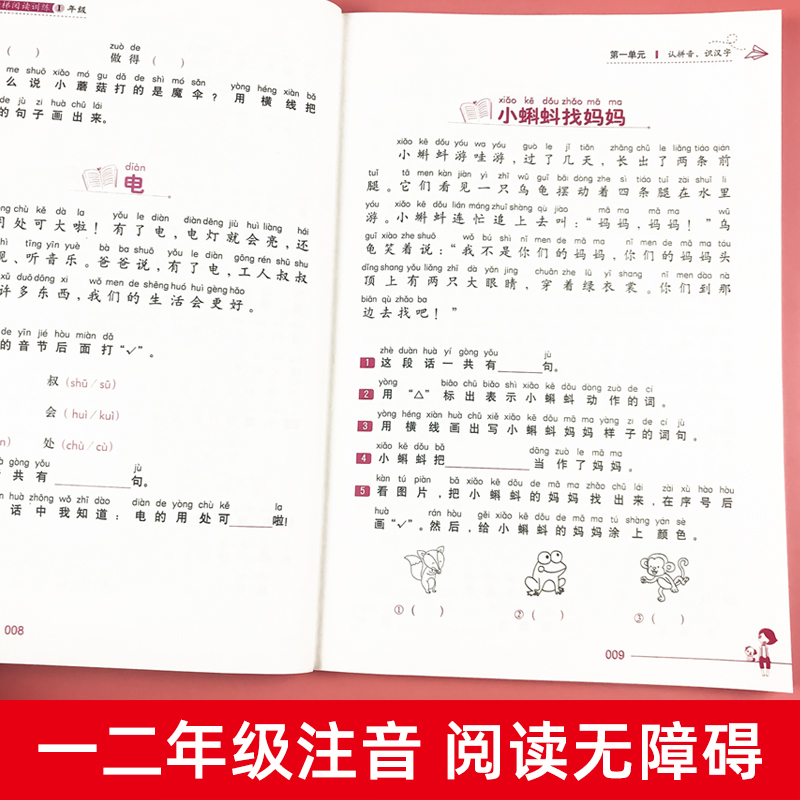 阅读训练 1 年级
zuò de
（ ） 做得（ ）
me shuō xiǎo mó gu dǎ de shì mó sǎn yòng héng xiàn bǎ
么说小蘑菇打的是魔伞？用横线把
de jù zi huà chū lái
的句子画出来。
diàn
电
chù kě dà la yǒu le diàn diàn dēng jiù huì liàng hái
用处可大啦！有了电，电灯就会亮，还
tīng yīn yuè bà ba shuō yǒu le diàn gōng rén shū shu
、听音乐。爸爸说，有了电，工人叔叔
xǔ duō dōng xi wǒ men de shēng huó huì gèng hǎo
许多东西，我们的生活会更好。
de yīn jié hòu miàn dǎ
的音节后面打“✓”。
叔（shū／sū）
会（huì／kuì）
处（chù／cù）
gòng yǒu jù
共有______句。
huà zhōng wǒ zhī dào diàn de yòng chù kě la
话中我知道：电的用处可______啦！
008
第一单元 认拼音、识汉字
xiǎo kē dǒu zhǎo mā ma
小蝌蚪找妈妈
xiǎo kē dǒu yóu wa yóu guò le jǐ tiān zhǎng chū le liǎng tiáo qián
小蝌蚪游哇游，过了几天，长出了两条前
tuǐ tā men kàn jiàn yì zhī wū guī bǎi dòng zhe sì tiáo tuǐ zài shuǐ lǐ
腿。它们看见一只乌龟摆动着四条腿在水里
yóu xiǎo kē dǒu lián máng zhuī shàng qù jiào mā ma mā ma wū
游。小蝌蚪连忙追上去叫：“妈妈，妈妈！”乌
guī xiào zhe shuō wǒ bú shì nǐ men de mā ma nǐ men de mā ma tóu
龟笑着说：“我不是你们的妈妈，你们的妈妈头
dǐng shang yǒu liǎng zhī dà yǎn jing chuān zhe lǜ yī shang nǐ men dào nà
顶上有两只大眼睛，穿着绿衣裳。你们到那
biān qù zhǎo ba
边去找吧！”
zhè duàn huà yí gòng yǒu jù
1 这段话一共有______句。
yòng biāo chū biǎo shì xiǎo kē dǒu dòng zuò de cí
2 用“△”标出表示小蝌蚪动作的词。
yòng héng xiàn huà chū xiě xiǎo kē dǒu mā ma yàng zi de cí jù
3 用横线画出写小蝌蚪妈妈样子的词句。
xiǎo kē dǒu bǎ dāng zuò le mā ma
4 小蝌蚪把____________当作了妈妈。
kàn tú piàn bǎ xiǎo kē dǒu de mā ma zhǎo chū lái zài xù hào hòu
5 看图片，把小蝌蚪的妈妈找出来，在序号后
huà rán hòu gěi xiǎo kē dǒu de mā ma tú shàng yán sè
画“✓”。然后，给小蝌蚪的妈妈涂上颜色。
①（ ） ②（ ） ③（ ）
009
一二年级注音 阅读无障碍